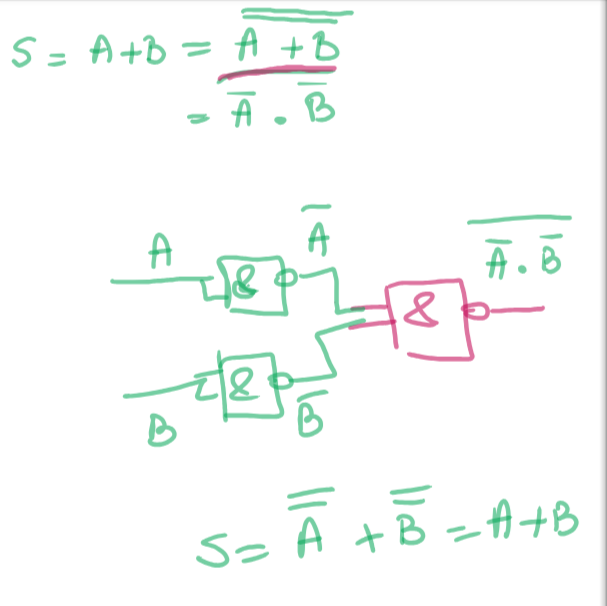 S = A+B = A̿ ̿+̿ ̿B̿
= A̅ . B̅
A
A̅
A̿ ̅.̅ ̅B̿
&
&
&
B
B̅
S = A̿ + B̿ = A+B